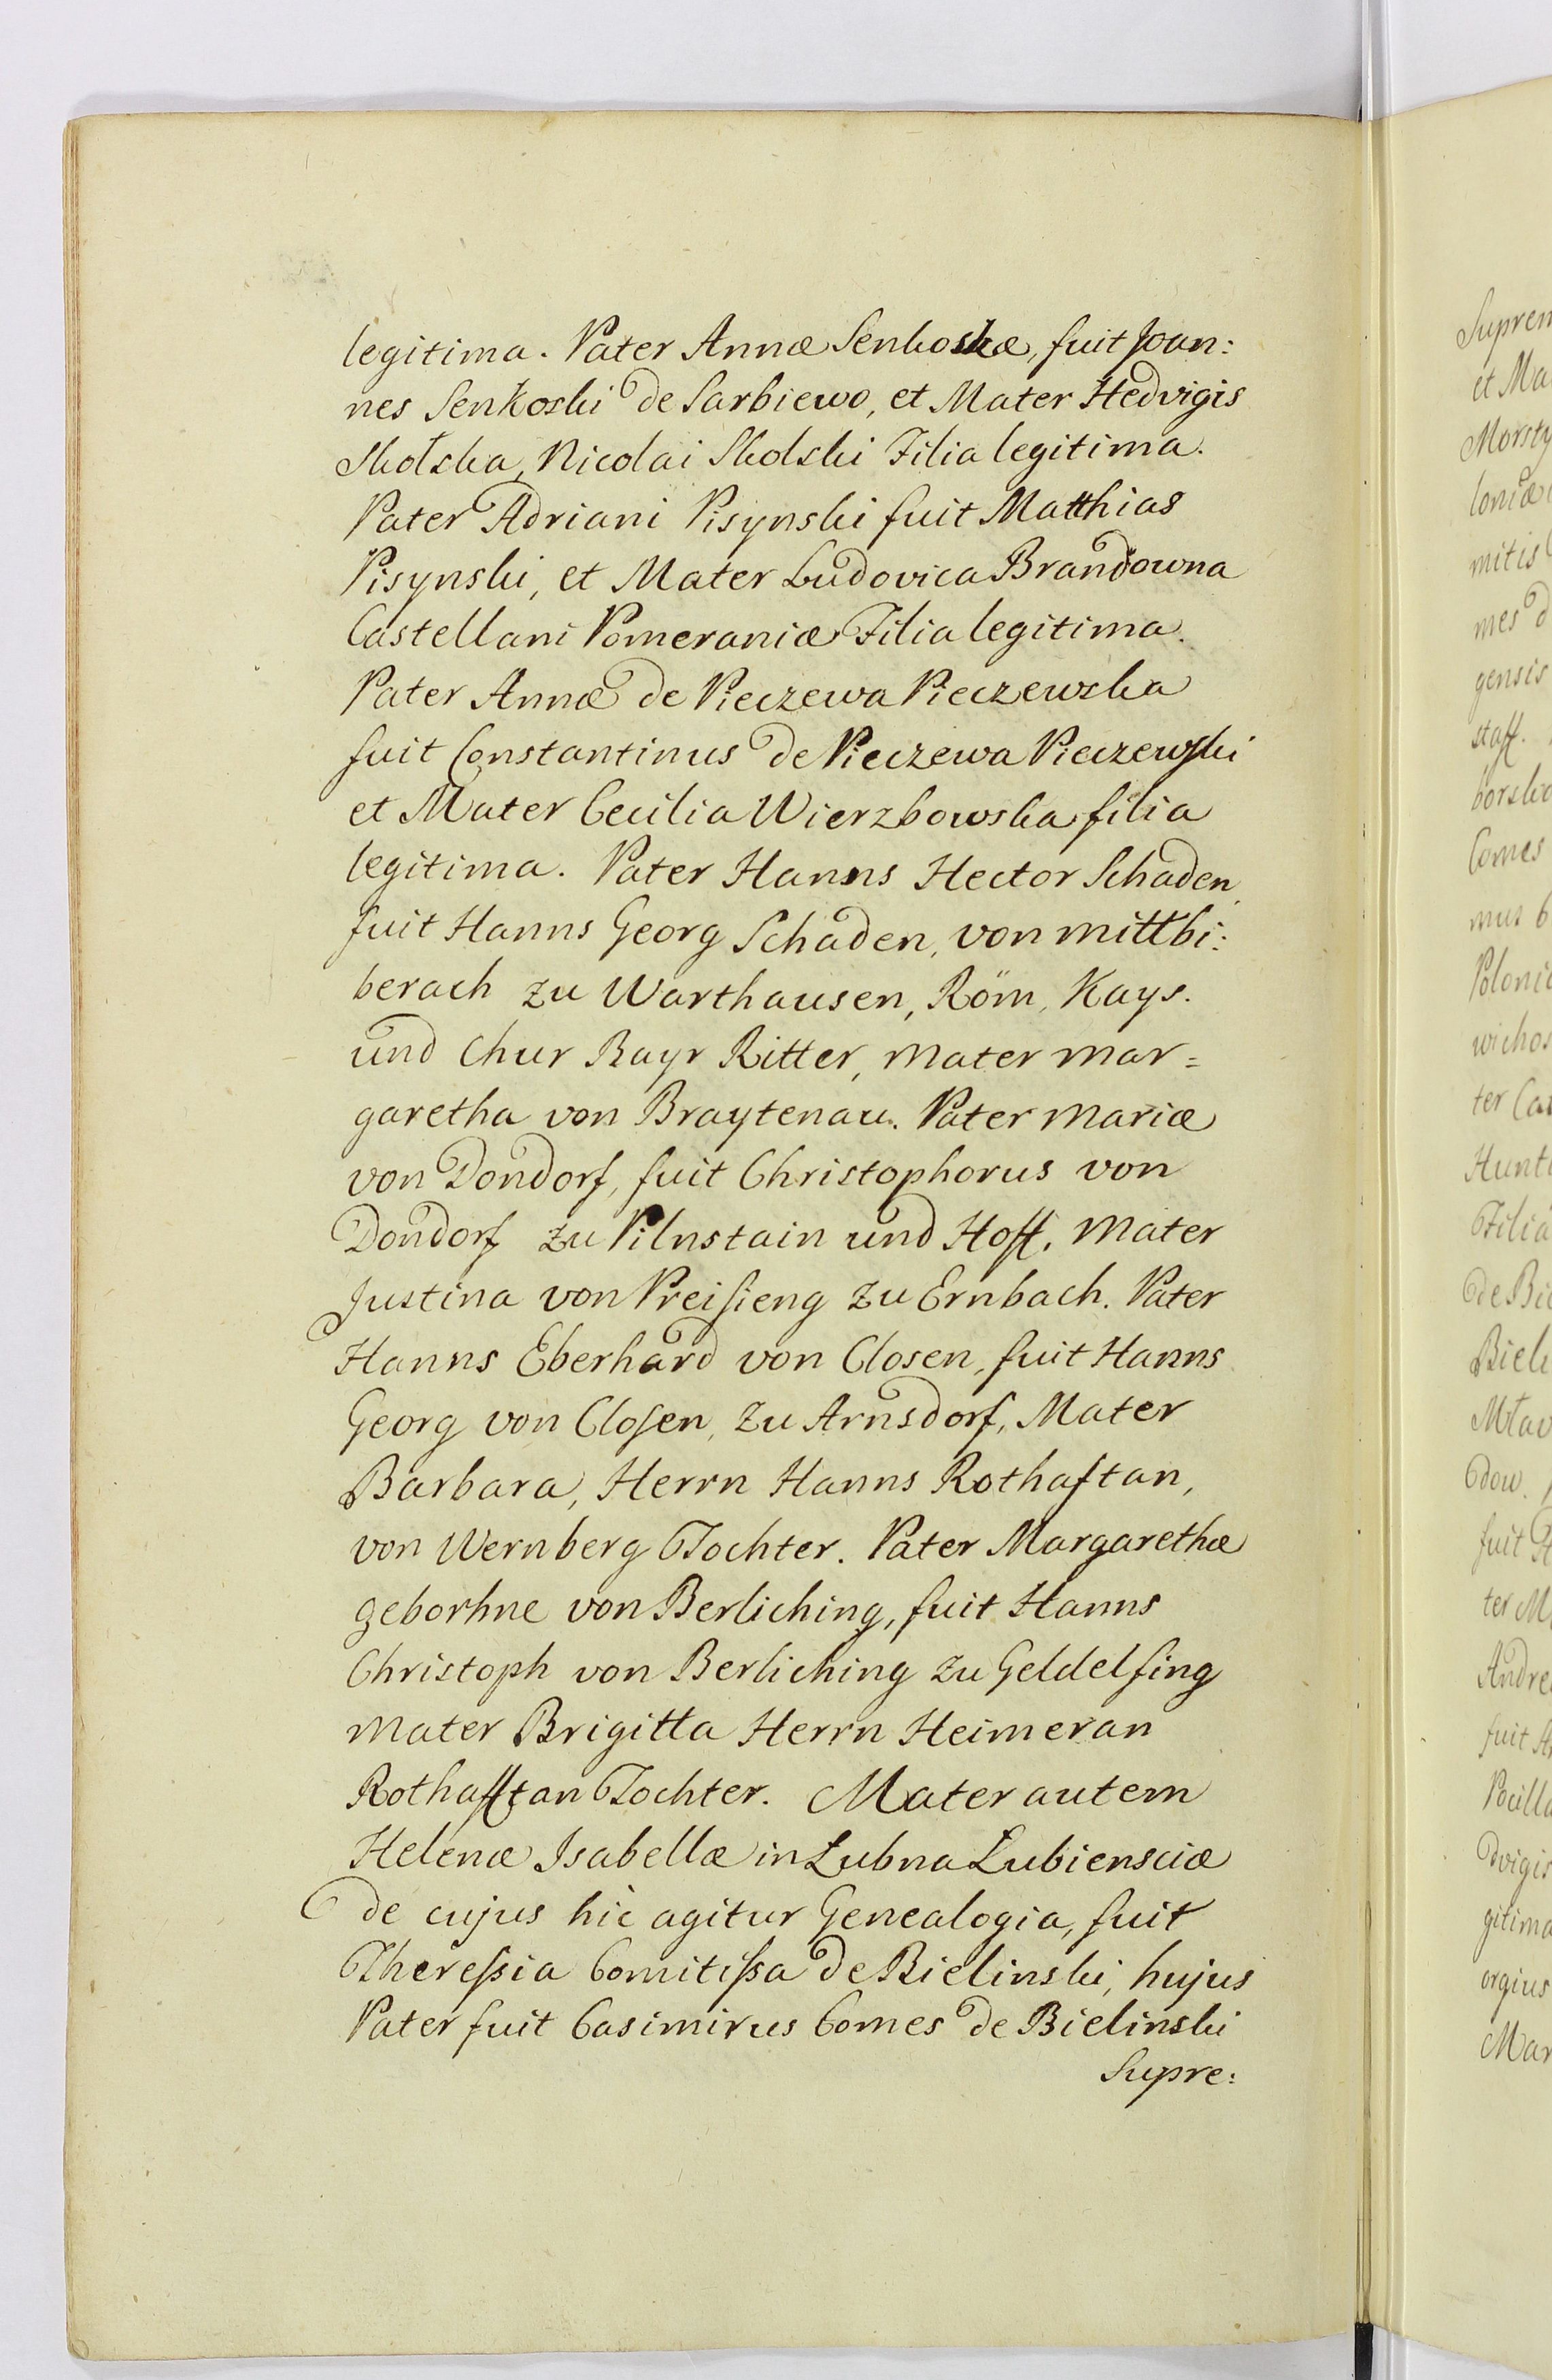 legitima. Pater Annæ Senkoskæ, fuit Joan:
nes Senkoski de Sarbiewo, et Mater Hedvigis
Skolska, Nicolai Skolski Filia legitima.
Pater Adriani Pisynski fuit Matthias
Pisynski, et Mater Ludovica Brandowna
Castellani Pomeraniæ Filia legitima.
Pater Annæ de Pieczewa Pieczewska
fuit Constantinus de Pieczewa Pieczewski
et Mater Cecilia Wierzbowska filia
legitima. Pater Hanns Hector Schaden,
fuit Hanns Georg Schaden, von mittbi:
berach zu Warthausen, Röm, Kays.
und Chur Bayr Ritter, Mater Mar=
garetha von Braytenau. Pater Mariæ
von Dondorf, fuit Christophorus von
Dondorf zu Pilnstain und Hoff. Mater
Justina von Preisieng zu Ernbach. Pater
Hanns Eberhard von Closen, fuit Hanns
Georg von Closen, zu Arnsdorf, Mater
Barbara, Herrn Hanns Rothaftan,
von Wernberg Tochter. Pater Margarethæ
geborhne von Berliching, fuit Hanns
Christoph von Berliching zu Geldelfing
Mater Brigitta Herrn Heimeran
Rothafftan Tochter. Mater autem
Helenæ Isabellæ in Lubna Lubiensciæ
de cujus hic agitur Genealogia, fuit
Theressia Comitissa de Bielinski, hujus
Pater fuit Casimirus Comes de Bielinski
Supre: